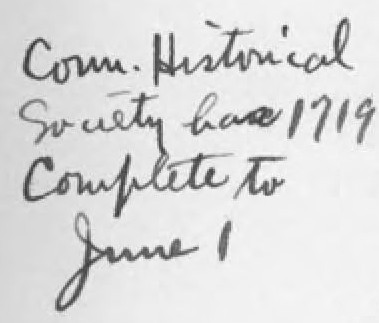 Conn. Historical
Society has 1719
Complete to
June 1